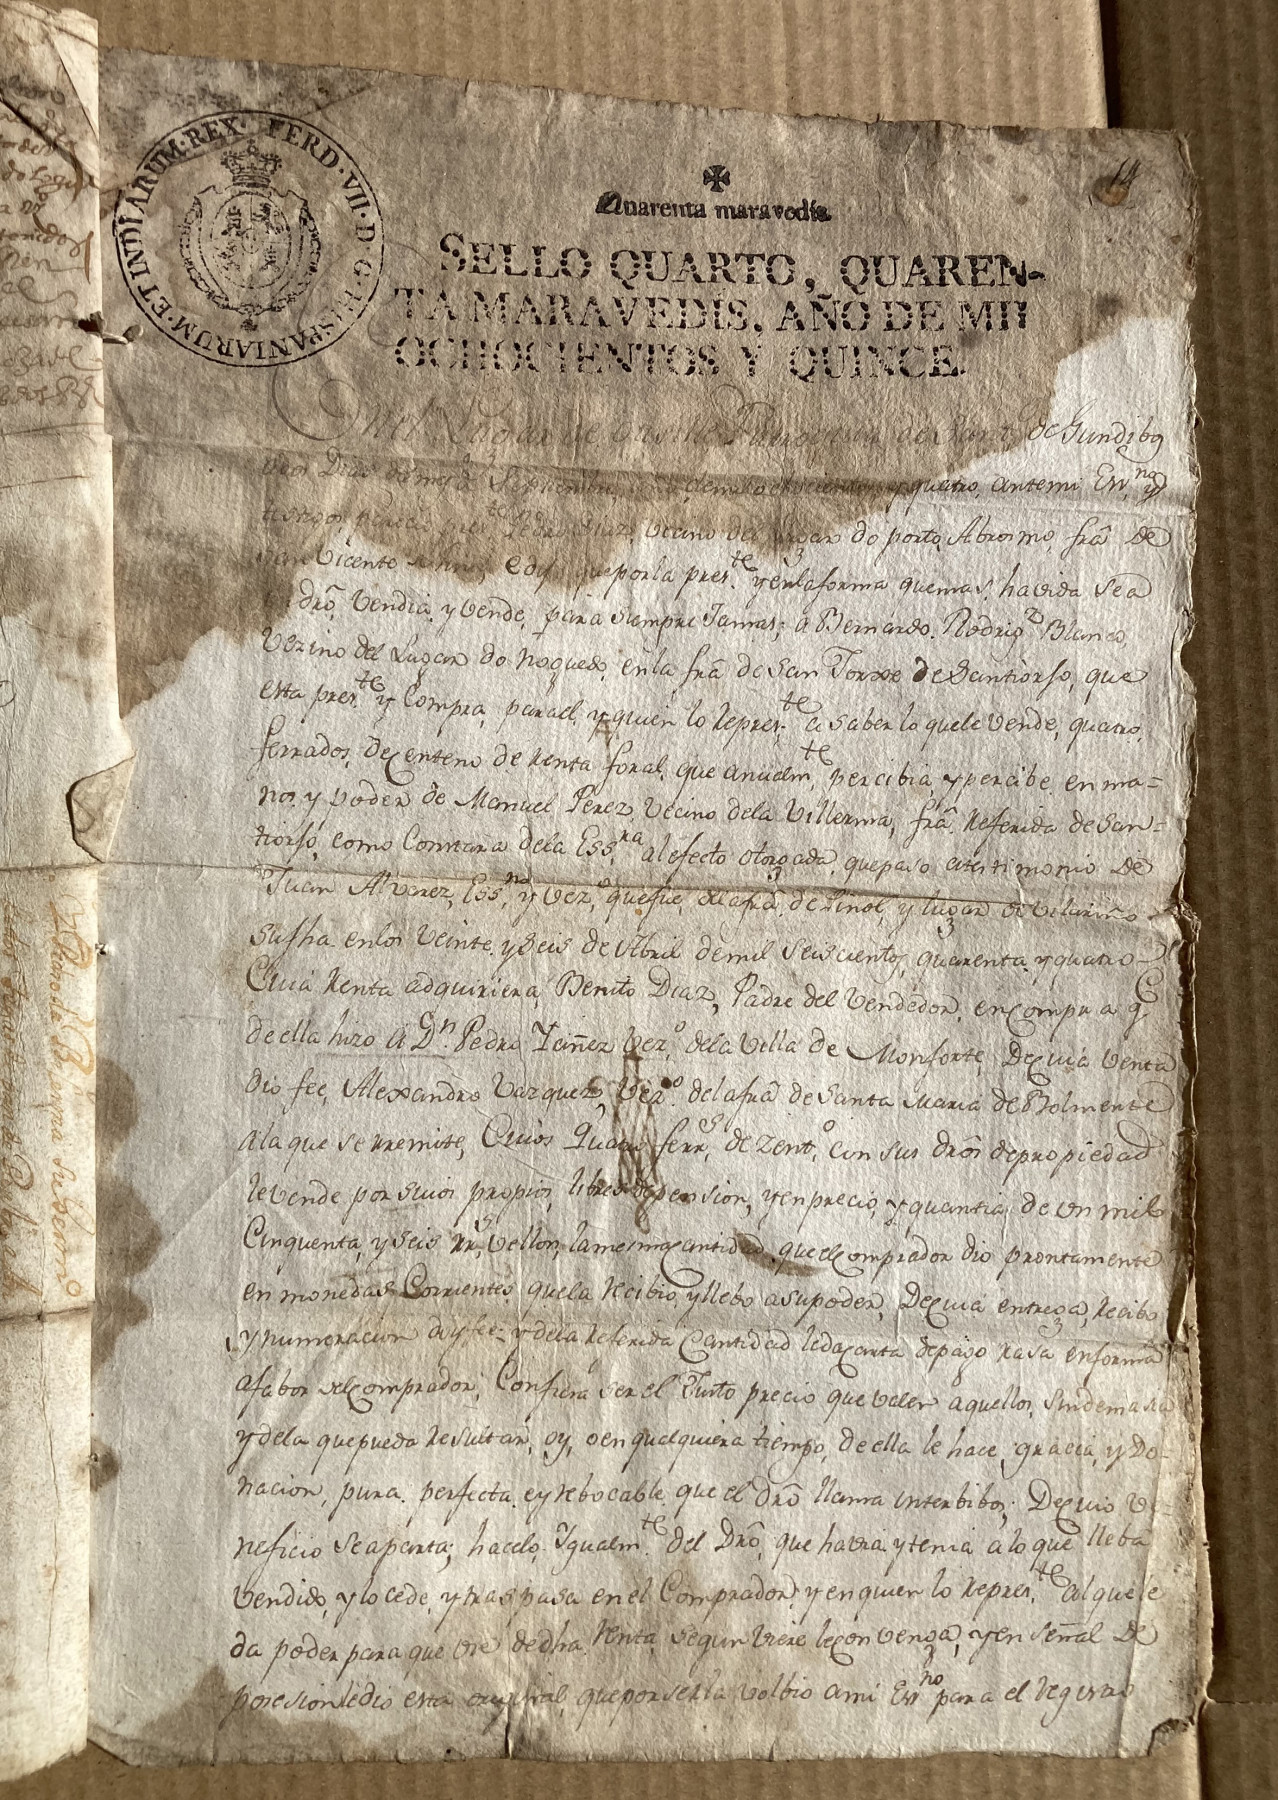 FERD·VII·D·G·HISPANIARUM·ET INDIARUM·REX·
14
Quarenta maravedis
SELLO QUARTO, QUAREN-
TA MARAVEDIS, AÑO DE MIL
OCHOCIENTOS Y QUINCE.
Enel Lugar de Parroquia de Gundibo
dos Dias del mes de Septiembre demil ochocientos y quatro, antemi Essno y
testigos parecio presente Pedro Diaz, Vecino del Lugar do porto Abrosmo, fra De
San Vicente y Dijo queporla preste y enlaforma quemas havida sea
dro, Vendia y Vende, para siempre Jamas; a Bernardo Rodrigz Blanco,
Vezino del Lugar do noguedo, enla fra de San Jorxe de Santiorso, que
esta preste y Compra, parael, y quien lo represte a Saber lo quele Vende, quatro
ferrados, de Centeno de Renta foral, que anualmte percibia, y percibe en ma=
nos, y poder de Manuel Perez, Vecino dela Villerma, fra Referida de San=
tiorso, como Constara dela Essra al efecto otorgada, quepaso atestimonio De
Juan Alvarez, Essno y Vezo quefue, dela fra de Pinol, y lugar de Vilariño
Sufha enlos Veinte y Seis de Abril demil Seiscientos, quarenta y quatro
Cuia Renta adquiriera, Benito Diaz, Padre del Vendedor, encompra q
de ella hizo a Dn Pedro Yañez Vezo dela Villa de Monforte, De Cuia Venta
Dio fee, Alexandro Vazquez, Vezo dela fra de Santa Maria de Bolmente
ala que se rremite, Cuios quatro ferrs de Zento, con sus dros depropiedad
leVende por suios propios, libres depension, y en precio, y quantia, de un mil
Cinquenta, y Seis rrs Vellon, lamesma cantidad, que el Comprador dio prontamente
en monedas Corrientes quela Recibio, y llebo asupoder, De Cuia entrega, Recibo
y numeracion doy fee; y dela Referida Cantidad leda carta depago rasa enforma
afabor del Comprador; Confiesa ser el Justo precio que valen aquellos, sindemasia
y dela quepueda Resultar, oy, o en qualquiera tiempo, de ella le hace, gracia, y Do-
nacion, pura, perfecta, eyrrebocable, que el dro llama interbibos; De Cuio Ve-
neficio Seaparta; hacelo, Ygualmte del Dro, que havia y tenia a lo que lleba
Vendido, y lo cede, y traspasa en el Comprador, y en quien lo represte al quele
da poder para que use de dha Renta segun Viere le Convenga, y en señal De
posesion ledio esta original, quepor serla volbio ami Essno para el registro